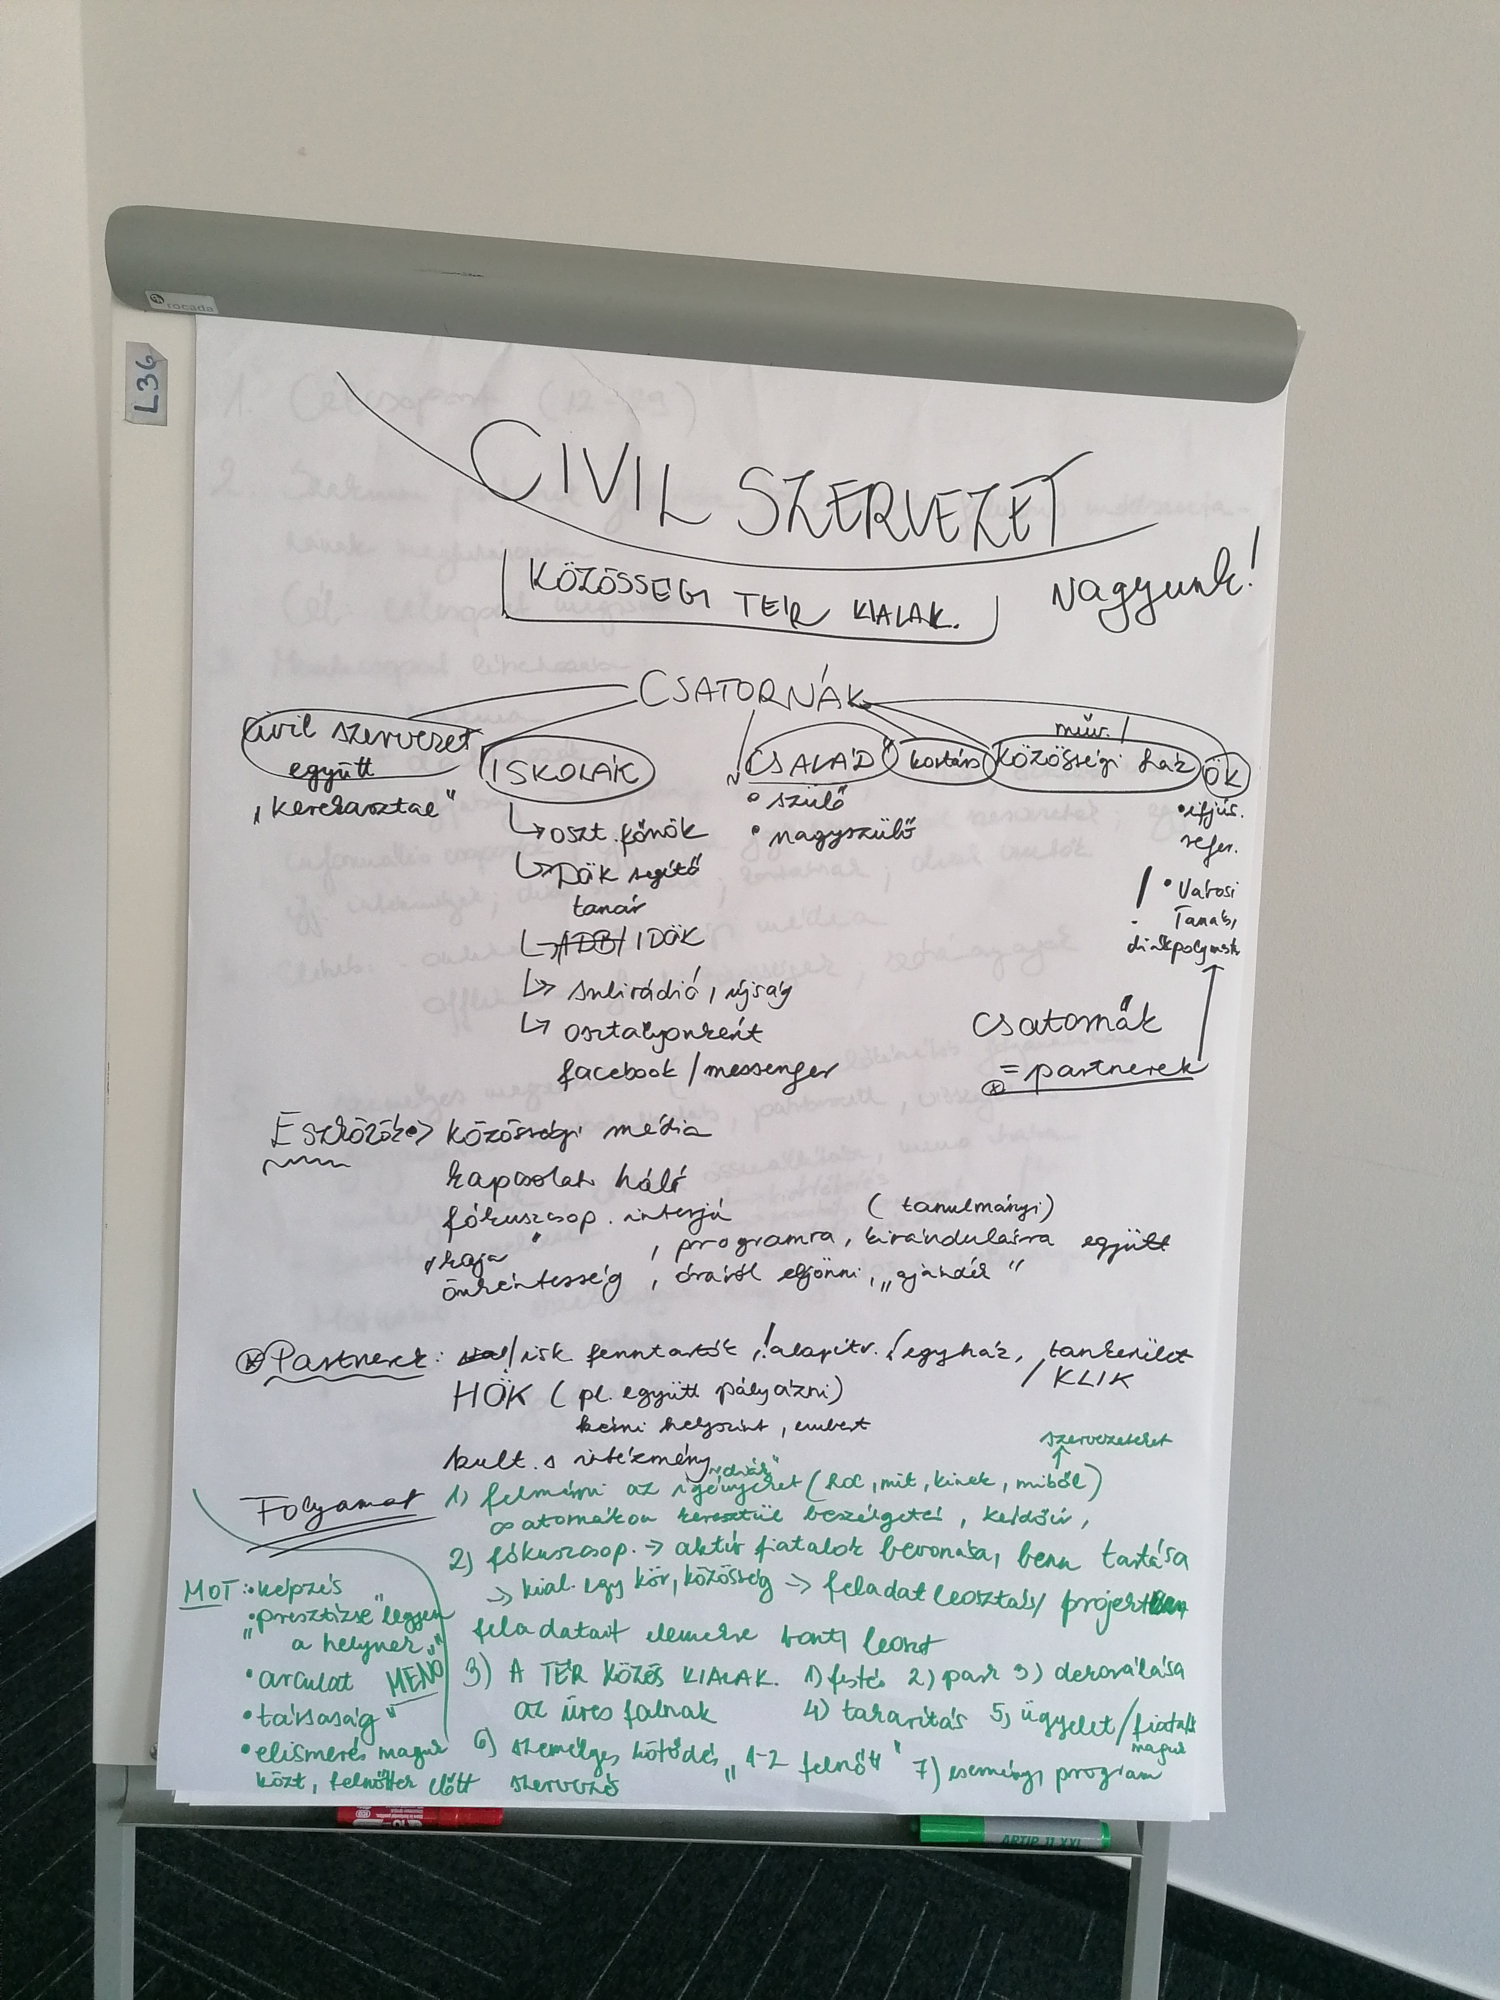 rocada
L36
CIVIL SZERVEZET
KÖZÖSSÉGI TÉR KIALAK.
Nagyunk!
CSATORNÁK
civil szervezet
együtt
„kerekasztal"
ISKOLÁK
↳ oszt. főnök
↳ DÖK segítő
tanár
↳ ADB/ IDÖK
↳ sulirádió, újság
↳ osztályonként
facebook / messenger
CSALÁD
• szülő
• nagyszülő
kortárs
műv. /
Közösségi ház
ÖK
• ifjús.
refer.
! • Városi
Tanács,
diákpolgárm.
Csatornák
= partnerek
Eszközök> közösségi média
kapcsolati háló
fókuszcsop. interjú (tanulmányi)
„kaja" , programra, kirándulásra együtt
önkéntesség, óráról eljönni, „ajándék"
Partnerek: /isk. fenntartók, !alapítv. /egyház, tankerület
/ KLIK
HÖK (pl. együtt pályázni)
kérni helyszínt, embert
kult. s intézmény
Folyamat
szervezeteket
1) felmérni az igényeket (hol, mit, kinek, miből)
csatornákon keresztül beszélgetés, kérdőív,
2) fókuszcsop. → aktív fiatalok bevonása, benn tartása
→ kial. egy kör, közösség → feladat leosztás/ projekt
feladatait elemekre bont/ leoszt
3) A TÉR KÖZÖS KIALAK. 1) festés 2) pakk 3) dekorálása
az üres falnak 4) takarítás 5) ügyelet/fiatalok
maguk
6) személyes kötődés „1-2 felnőtt" 7) esemény, program
szervezés
MOT: • képzés
• „presztízse" legyen
a helynek"
• arculat MENŐ
• társaság"
• elismerés maguk
közt, felnőttek előtt
ARTIP 11 XXL